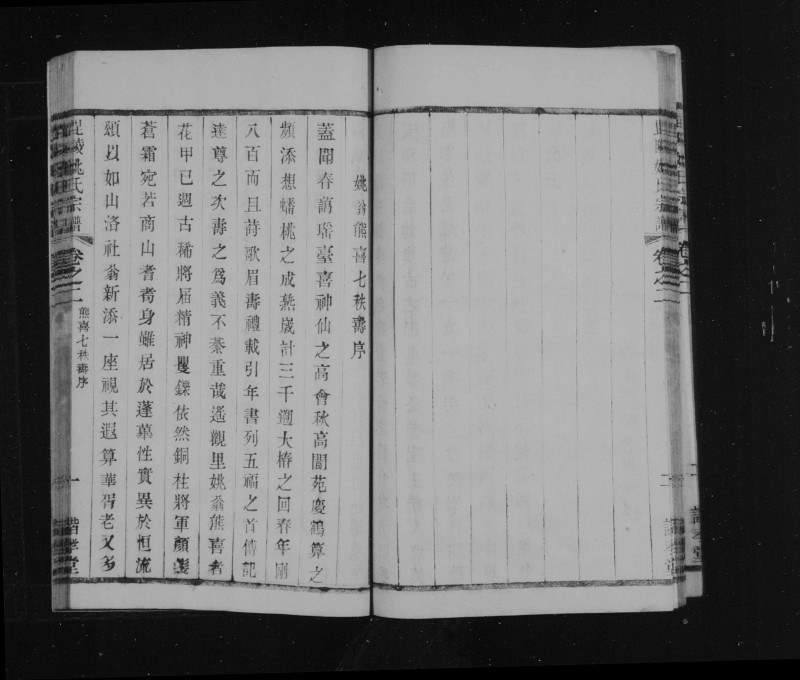 姚翁熊喜七秩壽序
蓋聞春藹瑤臺喜神仙之高會秋高閬苑慶鶴算之
頻添想蟠桃之成熟歲計三千遡大椿之回春年剛
八百而且蒔歌眉壽禮載引年書列五福之首傳記
達尊之次壽之爲義不綦重哉遙觀里姚翁熊喜者
花甲已週古稀將屆精神矍鑠依然銅柱將軍顏髪
蒼霜宛若商山耆耈身雖居於蓬蓽性實異於恒流
頌以如山洛社翁新添一座視其遐算華胥老又多
毘陵姚氏宗譜
卷之二
熊喜七秩壽序
一
諧孝堂